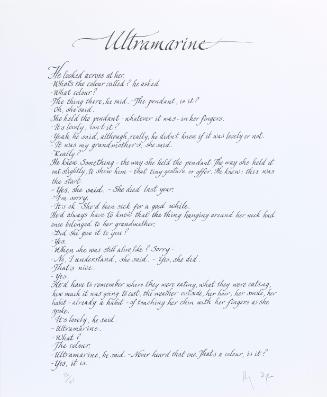 Ultramarine
He looked across at her.
- What's the colour called? he asked.
- What colour?
- The thing there, he said. - The pendant, is it?
- Oh, she said.
She held the pendant - whatever it was - in her fingers.
- It's lovely, isn't it?
- Yeah, he said, although, really, he didn't know if it was lovely or not.
- It was my grandmother's, she said.
- Really?
He knew something - the way she held the pendant. The way she held it
out slightly, to show him - that tiny gesture or offer. He knew: this was
the start.
- Yes, she said. - She died last year.
- I'm sorry.
- It's ok. She'd been sick for a good while.
He'd always have to know that the thing hanging around her neck had
once belonged to her grandmother.
- Did she give it to you?
- Yes.
- When she was still alive like? Sorry -
- No, I understand, she said. - Yes, she did.
- That's nice.
- Yes.
He'd have to remember where they were eating, what they were eating,
how much it was going to cost, the weather outside, her hair, her smile, her
habit - already a habit - of touching her chin with her fingers as she
spoke.
- It's lovely, he said.
- Ultramarine.
- What?
- The colour.
- Ultramarine, he said. - Never heard that one. That's a colour, is it?
- Yes, it is.